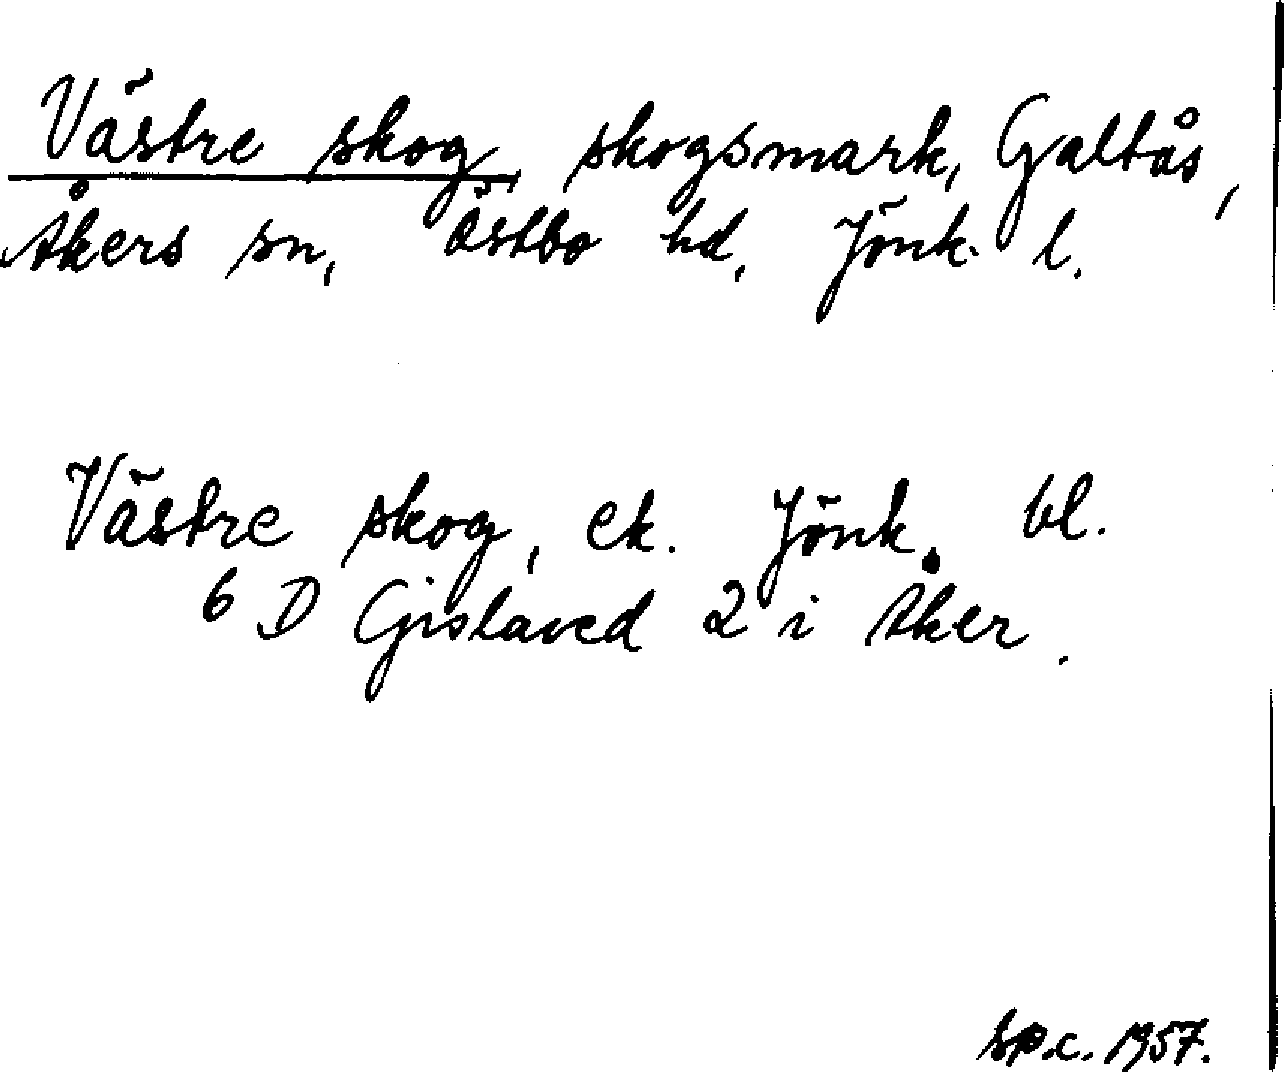 Västre skog, skogsmark, Galtås,
Åkers sn, Östbo hd, Jönk. l.
Västre skog, ek. Jönk. bl.
6 D Gislaved 2 i Åker.
sp.c. 1957.